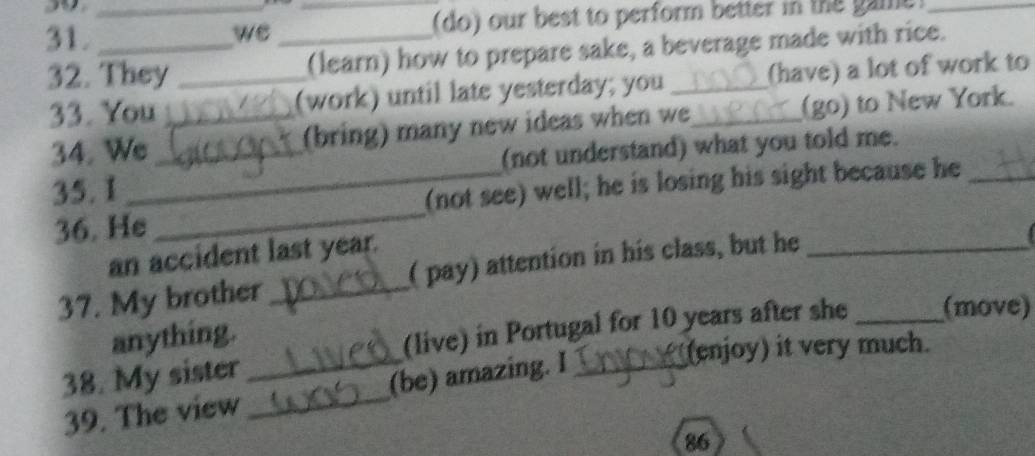 31. ______ we ______ (do) our best to perform better in the game? ______
32. They ______ (learn) how to prepare sake, a beverage made with rice.
33. You ______ (work) until late yesterday; you ______ (have) a lot of work to
34. We ______ (bring) many new ideas when we ______ (go) to New York.
35. I ______ (not understand) what you told me.
36. He ______ (not see) well; he is losing his sight because he ______
an accident last year.
37. My brother payed ( pay) attention in his class, but he ______ (
anything.
38. My sister Lived (live) in Portugal for 10 years after she ______ (move)
39. The view was (be) amazing. I ______ (enjoy) it very much.
86